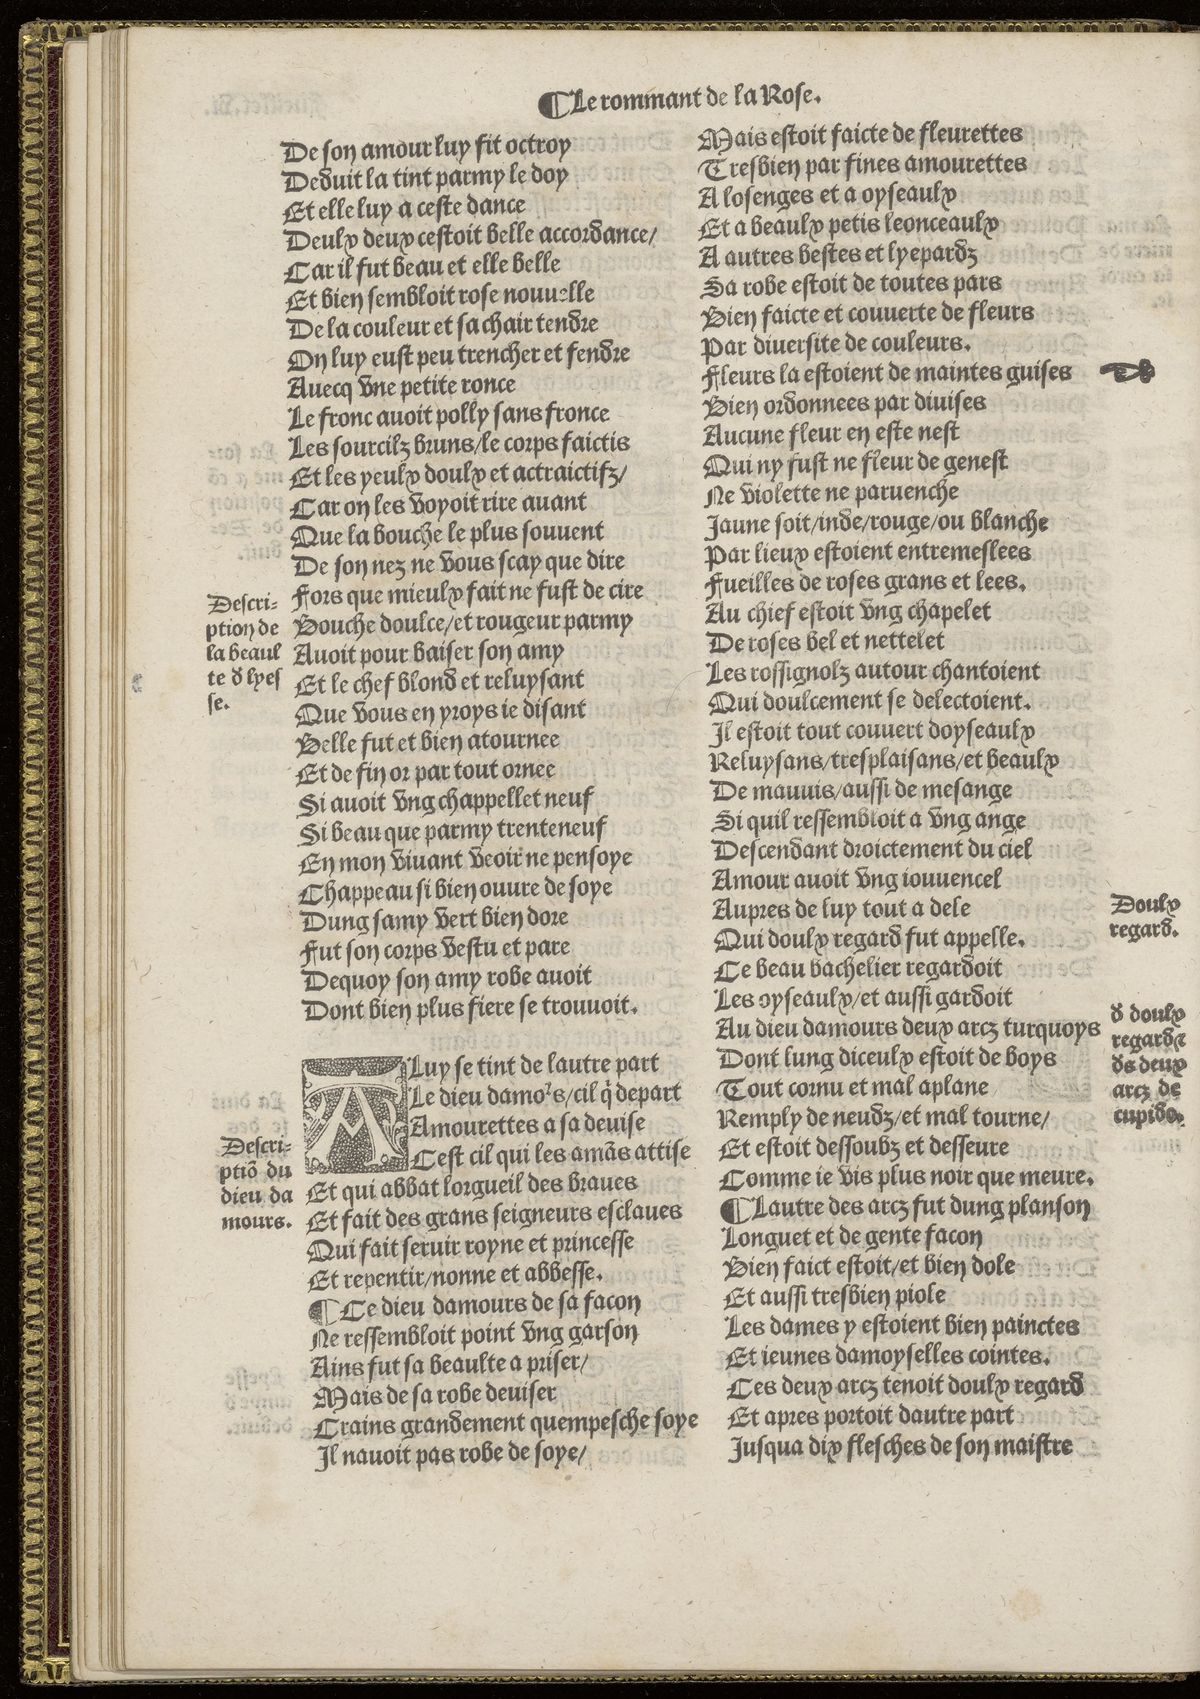 ¶Le rommant de la Rose.
De son amour luy fit octroy
Deduit la tint parmy le doy
Et elle luy a ceste dance
Deulx deux cestoit belle accordance/
Car il fut beau et elle belle
Et bien sembloit rose nouuelle
De la couleur et sa chair tendre
On luy eust peu trencher et fendre
Auecq vne petite ronce
Le fronc auoit polly sans fronce
Les sourcilz bruns/le corps faictis
Et les yeulx doulx et actraictifz/
Car on les voyoit rire auant
Que la bouche le plus souuent
De son nez ne vous scay que dire
Fors que mieulx fait ne fust de cire
Descri-
ption de
la beaul
te d lyes
se.
Bouche doulce/et rougeur parmy
Auoit pour baiser son amy
Et le chef blond et reluysant
Que vous en yroys ie disant
Belle fut et bien atournee
Et de fin or par tout ornee
Si auoit vng chappellet neuf
Si beau que parmy trenteneuf
En mon viuant veoir ne pensoye
Chappeau si bien ouure de soye
Dung samy vert bien dore
Fut son corps vestu et pare
Dequoy son amy robe auoit
Dont bien plus fiere se trouuoit.
A Luy se tint de lautre part
Le dieu damoʳs/cil q̇ depart
Amourettes a sa deuise
Cest cil qui les amãs attise
Descri-
ptiõ du
dieu da
mours.
Et qui abbat lorgueil des braues
Et fait des grans seigneurs esclaues
Qui fait seruir royne et princesse
Et repentir/nonne et abbesse.
¶ Ce dieu damours de sa facon
Ne ressembloit point vng garson
Ains fut sa beaulte a priser/
Mais de sa robe deuiser
Crains grandement quempesche soye
Il nauoit pas robe de soye/
Mais estoit faicte de fleurettes
Tresbien par fines amourettes
A losenges et a oyseaulx
Et a beaulx petis leonceaulx
A autres bestes et lyepardz
Sa robe estoit de toutes pars
Bien faicte et couuerte de fleurs
Par diuersite de couleurs.
Fleurs la estoient de maintes guises
Bien ordonnees par diuises
Aucune fleur en este nest
Qui ny fust ne fleur de genest
Ne violette ne paruenche
Jaune soit/inde/rouge/ou blanche
Par lieux estoient entremeslees
Fueilles de roses grans et lees.
Au chief estoit vng chapelet
De roses bel et nettelet
Les rossignolz autour chantoient
Qui doulcement se delectoient.
Il estoit tout couuert doyseaulx
Reluysans/tresplaisans/et beaulx
De mauuis/aussi de mesange
Si quil ressembloit a vng ange
Descendant droictement du ciel
Amour auoit vng iouuencel
Aupres de luy tout a dele
Qui doulx regard fut appelle.
Doulx
regard.
Ce beau bachelier regardoit
Les oyseaulx/et aussi gardoit
Au dieu damours deux arcz turquoys
Dont lung diceulx estoit de boys
Tout cornu et mal aplane
Remply de neudz/et mal tourne/
d doulx
regard
ds deux
arcz de
cupido.
Et estoit dessoubz et desseure
Comme ie vis plus noir que meure.
¶Lautre des arcz fut dung planson
Longuet et de gente facon
Bien faict estoit/et bien dole
Et aussi tresbien piole
Les dames y estoient bien painctes
Et ieunes damoyselles cointes.
Ces deux arcz tenoit doulx regard
Et apres portoit dautre part
Jusqua dix flesches de son maistre